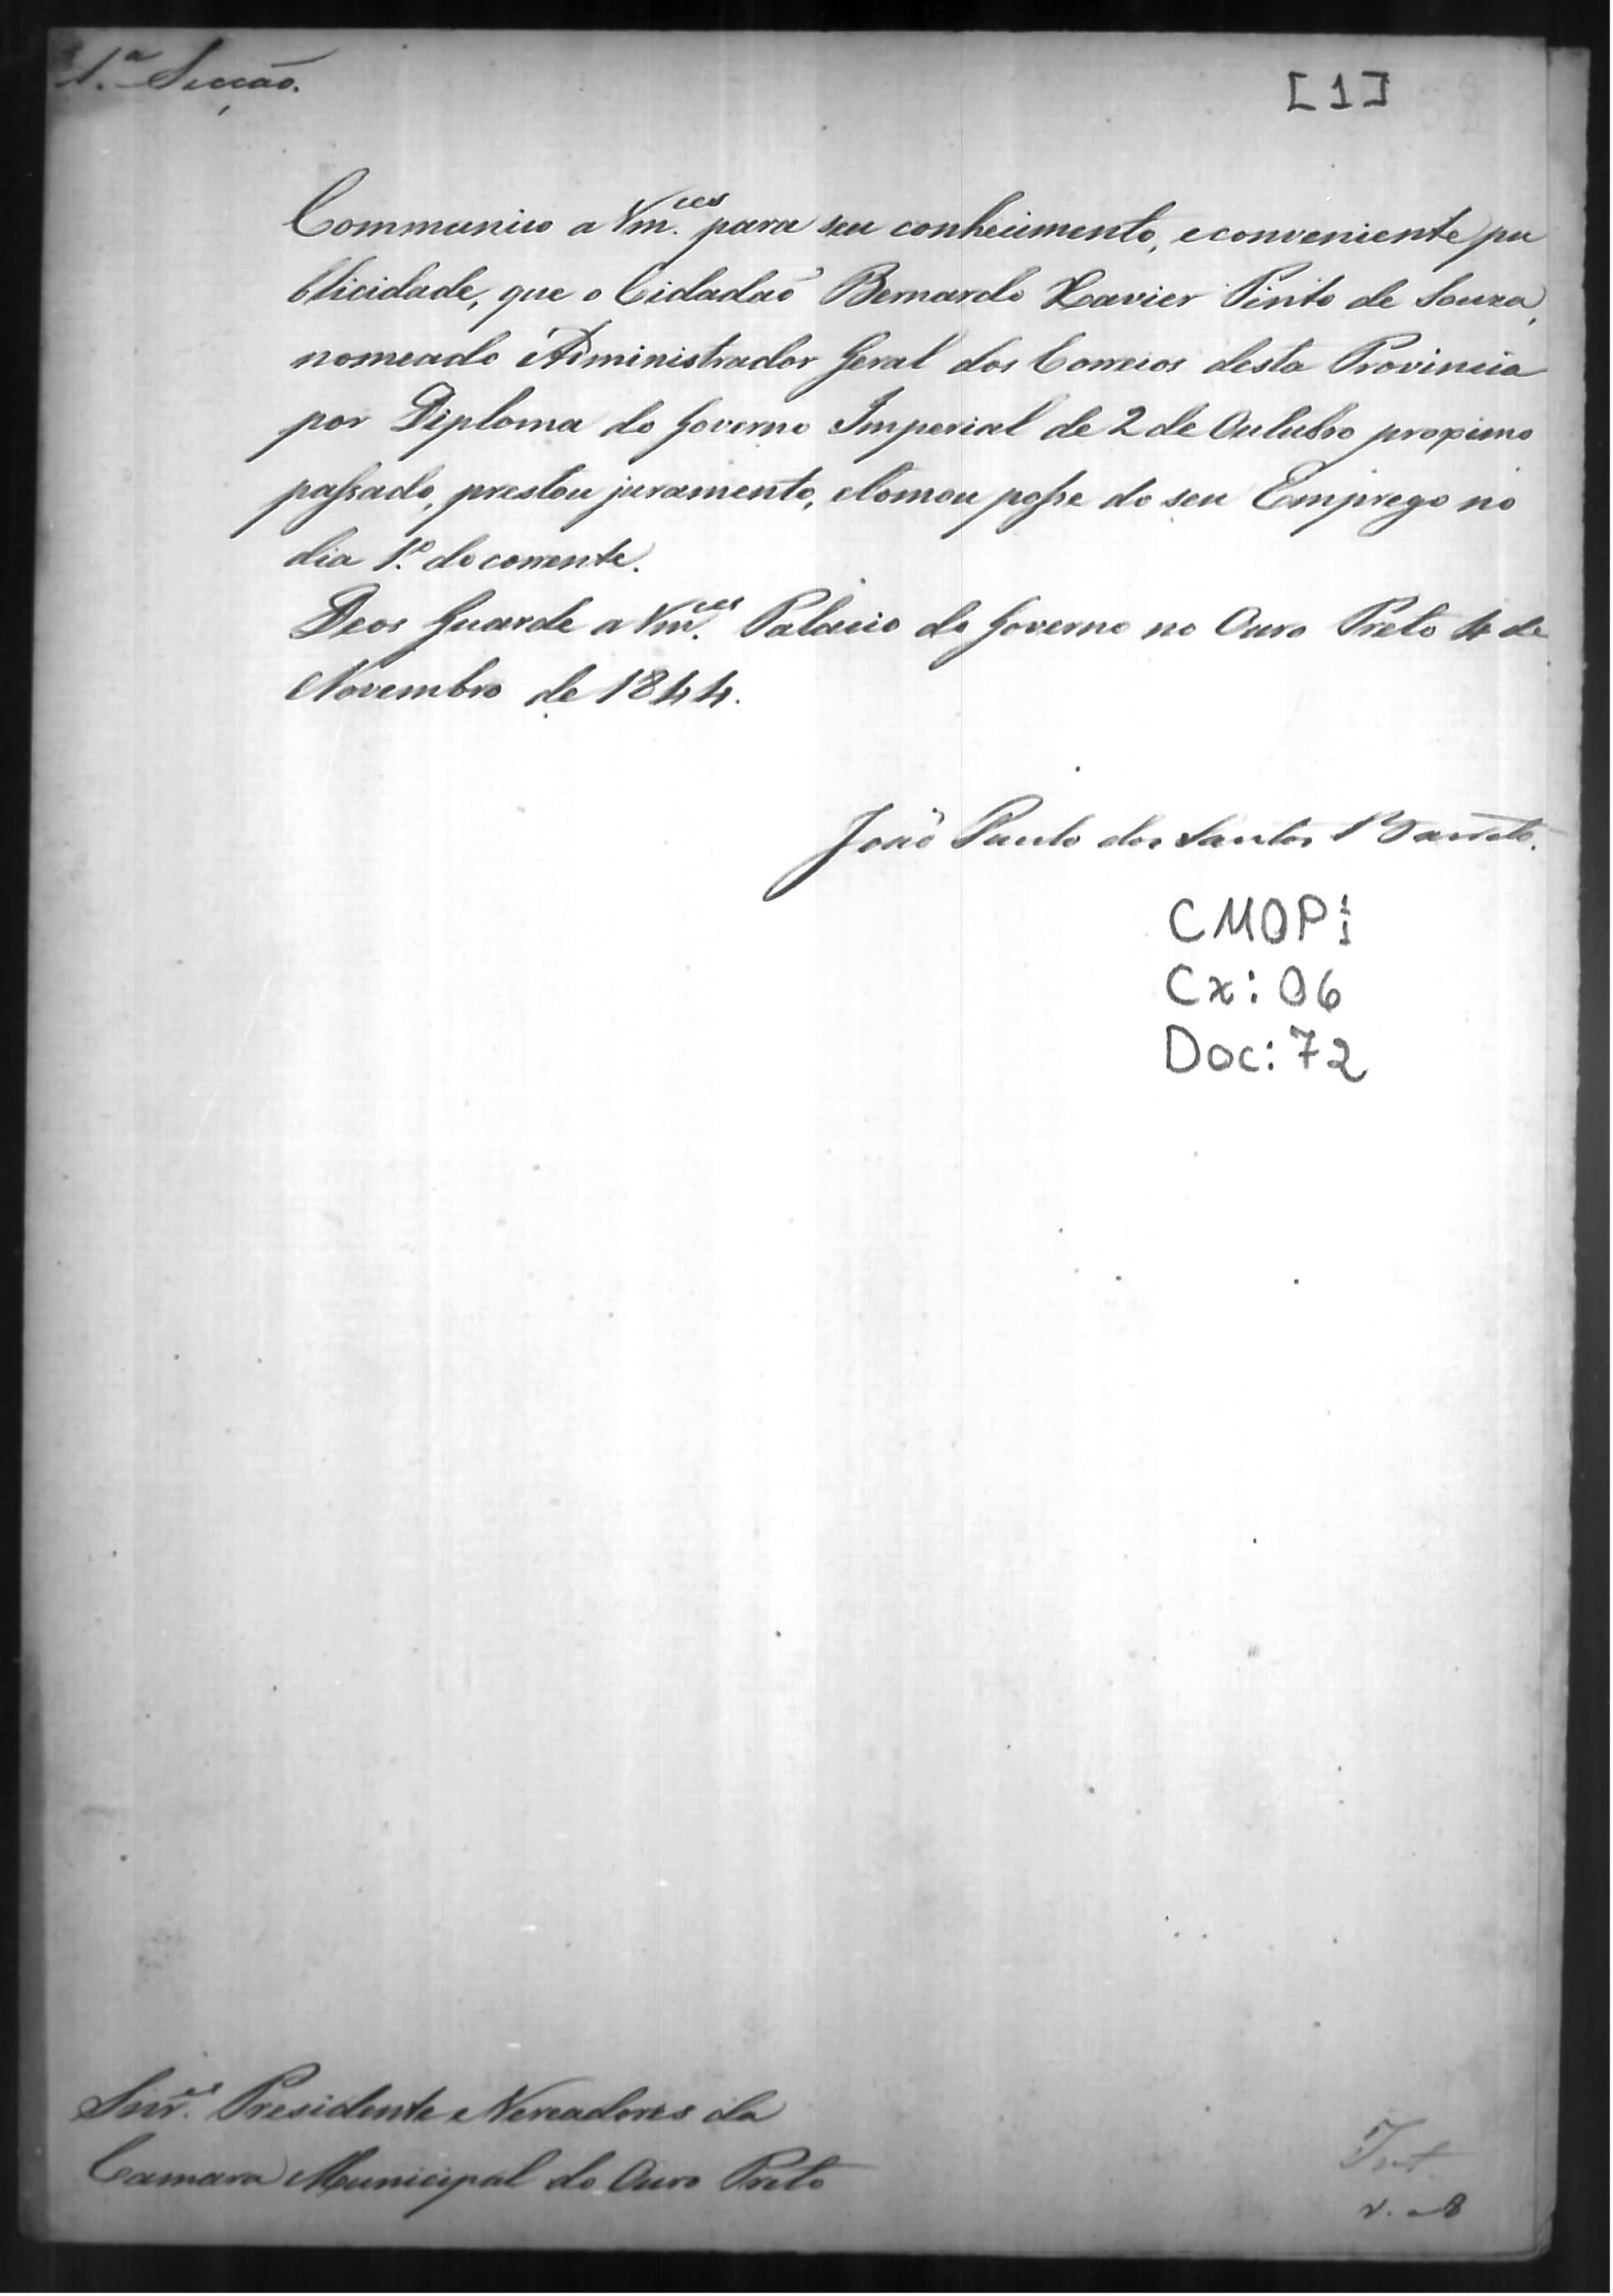 1.ª Secção.
[1]
Communico a Vm.ces para seu conhecimento, e conveniente pu
blicidade, que o Cidadaõ Bernardo Xavier Pinto de Souza,
nomeado Administrador Geral dos Correios desta Provincia
por Diploma do Governo Imperial de 2 de Outubro proximo
passado, prestou juramento, e tomou posse do seu Emprego no
dia 1.º do corrente.
Deos Guarde a Vm.ces Palacio do Governo no Ouro Preto 4 de
Novembro de 1844.
Joaõ Paulo dos Santos Barreto.
CMOP:
Cx: 06
Doc: 72
Snr.es Presidente e Vereadores da
Camara Municipal do Ouro Preto